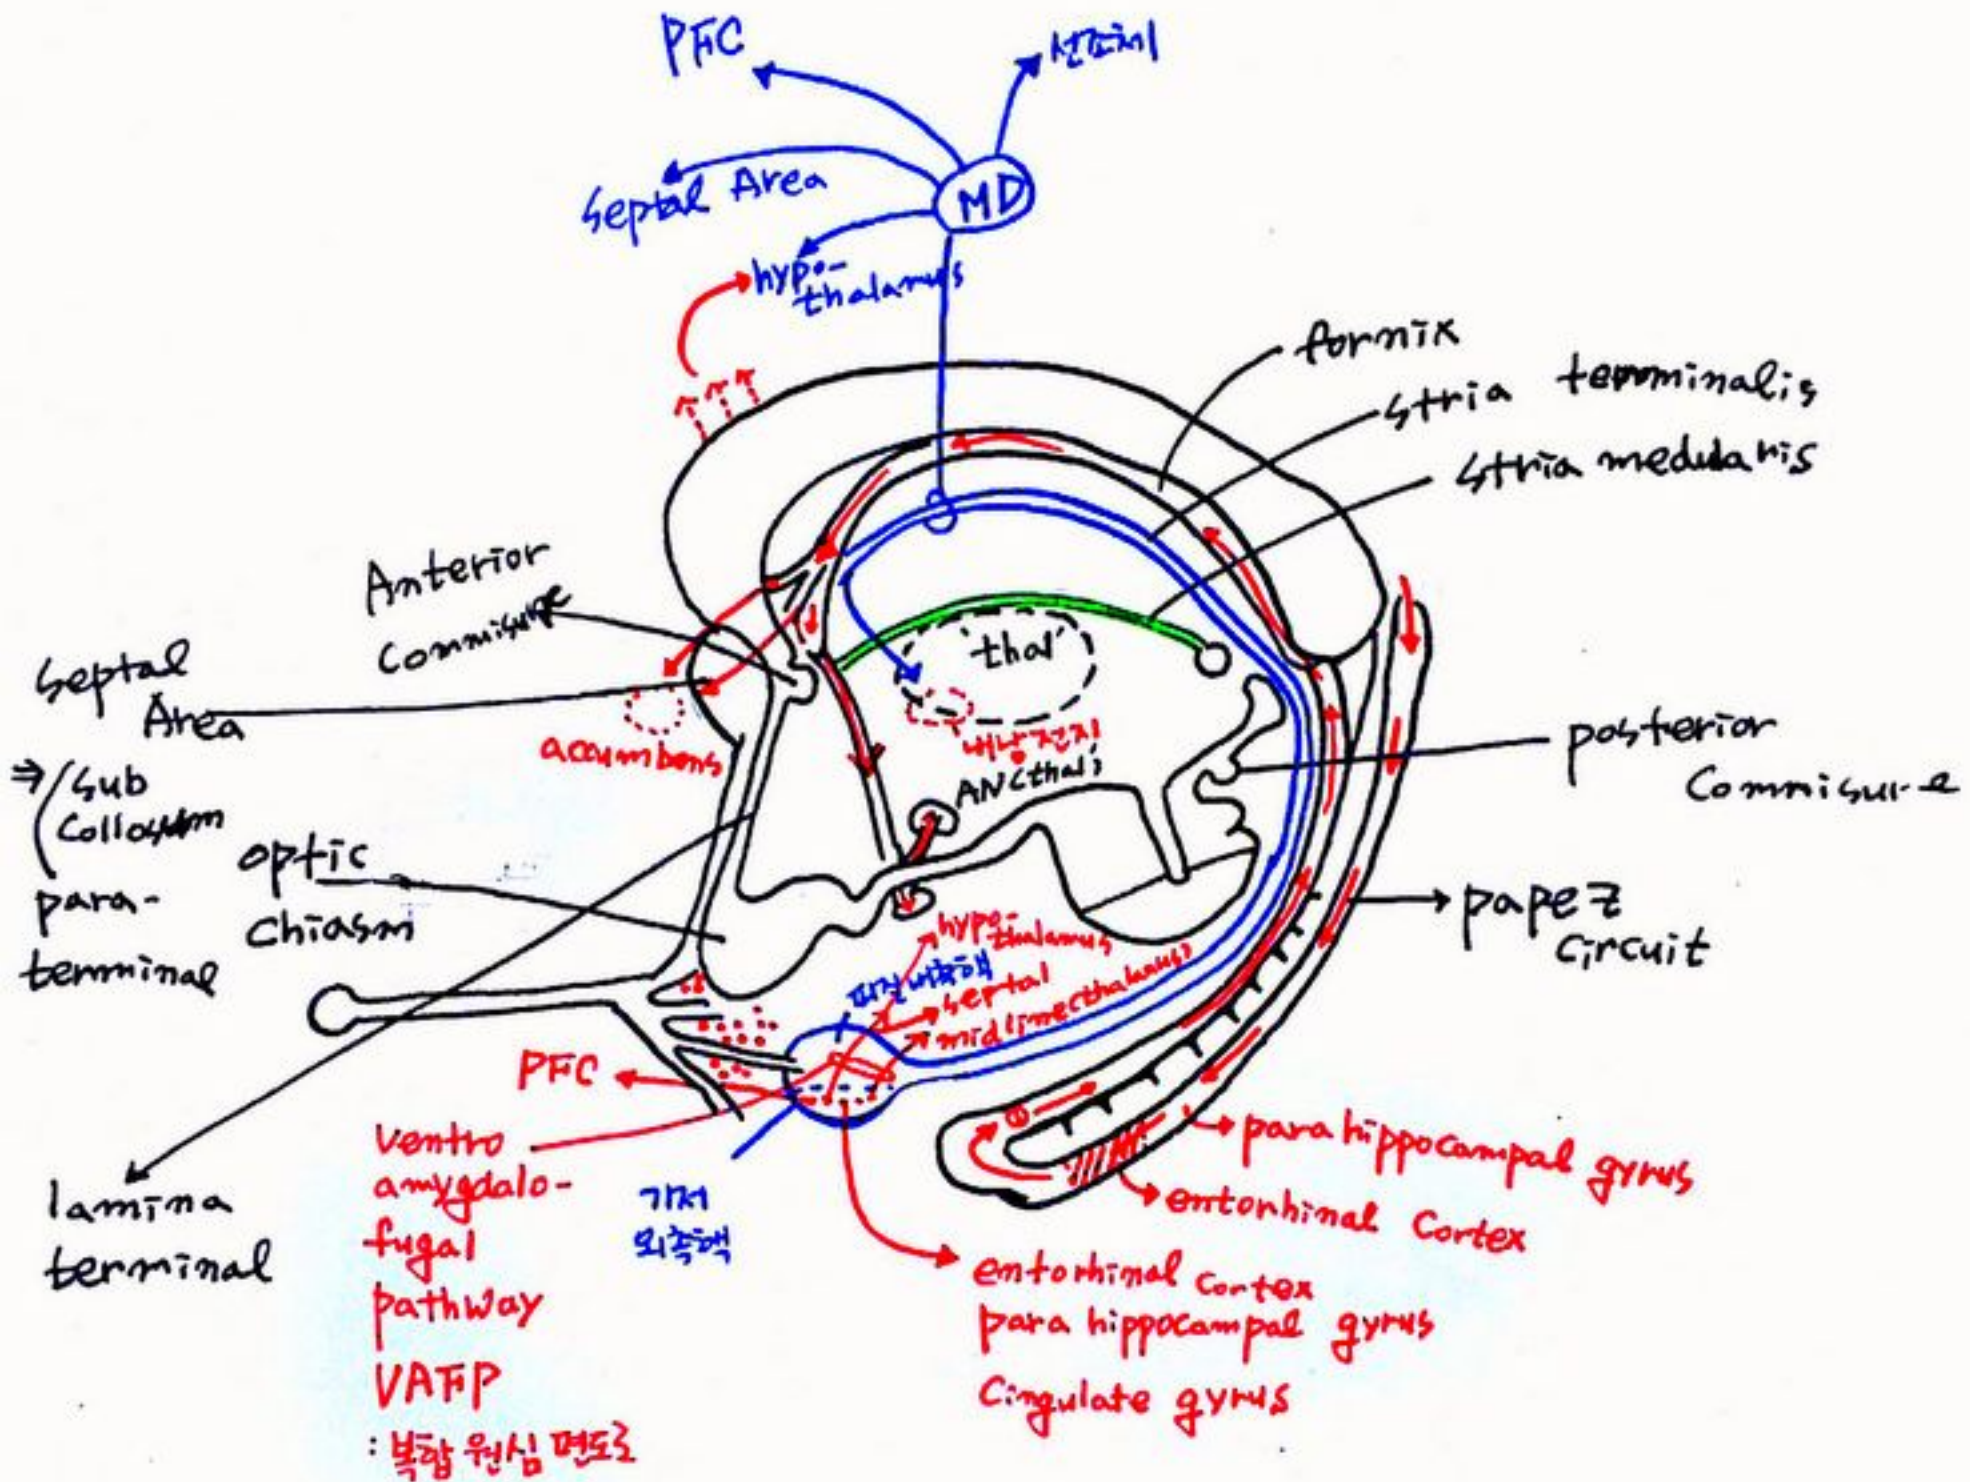 PFC
선조체
Septal Area
MD
hypo-
thalamus
fornix
stria terminalis
stria medularis
Anterior
Commisure
Septal
Area
⇒ (sub
Collosum
para-
terminal
thal
accumbens
내남전지
AN(thal)
posterior
Commisure
optic
chiasm
papez
circuit
hypo-
thalamus
피질내측핵
septal
midline(thalamus)
PFC
ventro
amygdalo-
fugal
pathway
VAFP
: 복합 원심 편도로
기저
외측핵
①
para hippocampal gyrus
entorhinal Cortex
entorhinal Cortex
para hippocampal gyrus
Cingulate gyrus
lamina
terminal